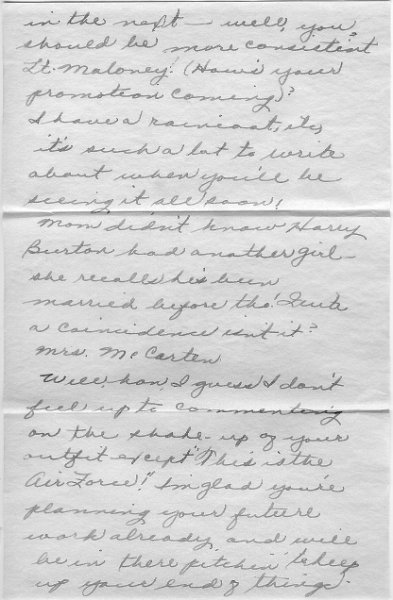 in the next — well, you
should be more consistent
Lt. Maloney! (How's your
promotion coming)?
I have a raincoat, its,
it's such a lot to write
about when you'll be
seeing it all soon!
Mom didn't know Harry
Burton had another girl—
she recalls he's been
married before tho! Quite
a coincidence isn't it?
Mrs. McCarten
Well, hon I guess I don't
feel up to commenting
on the shake-up of your
outfit except "This is the
Air Force!" I'm glad you're
planning your future
work already and will
be in there pitchin' to keep
up your end of things.